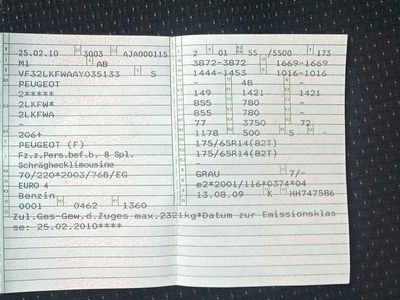 25.02.10 3003 AJA000115
M1 AB
VF32LKFWAAY035133 5
PEUGEOT
2*****
2LKFW*
2LKFWA
-
206+
PEUGEOT (F)
Fz.z.Pers.bef.b. 8 Spl.
Schräghecklimousine
70/220*2003/768/EG
EURO 4
Benzin
0001 0462 1360
2 01 55 /5500 173
3872-3872 1669-1669
1444-1453 1016-1016
- 48 -
149 1421 1421
855 780 -
855 780 -
77 3750 72
1178 500 5 -
175/65R14(82T)
175/65R14(82T)
-
GRAU 7/-
e2*2001/116*0374*04
13.08.09 K HH747586
Zul.Ges-Gew.d.Zuges max.2321kg*Datum zur Emissionsklas
se: 25.02.2010****